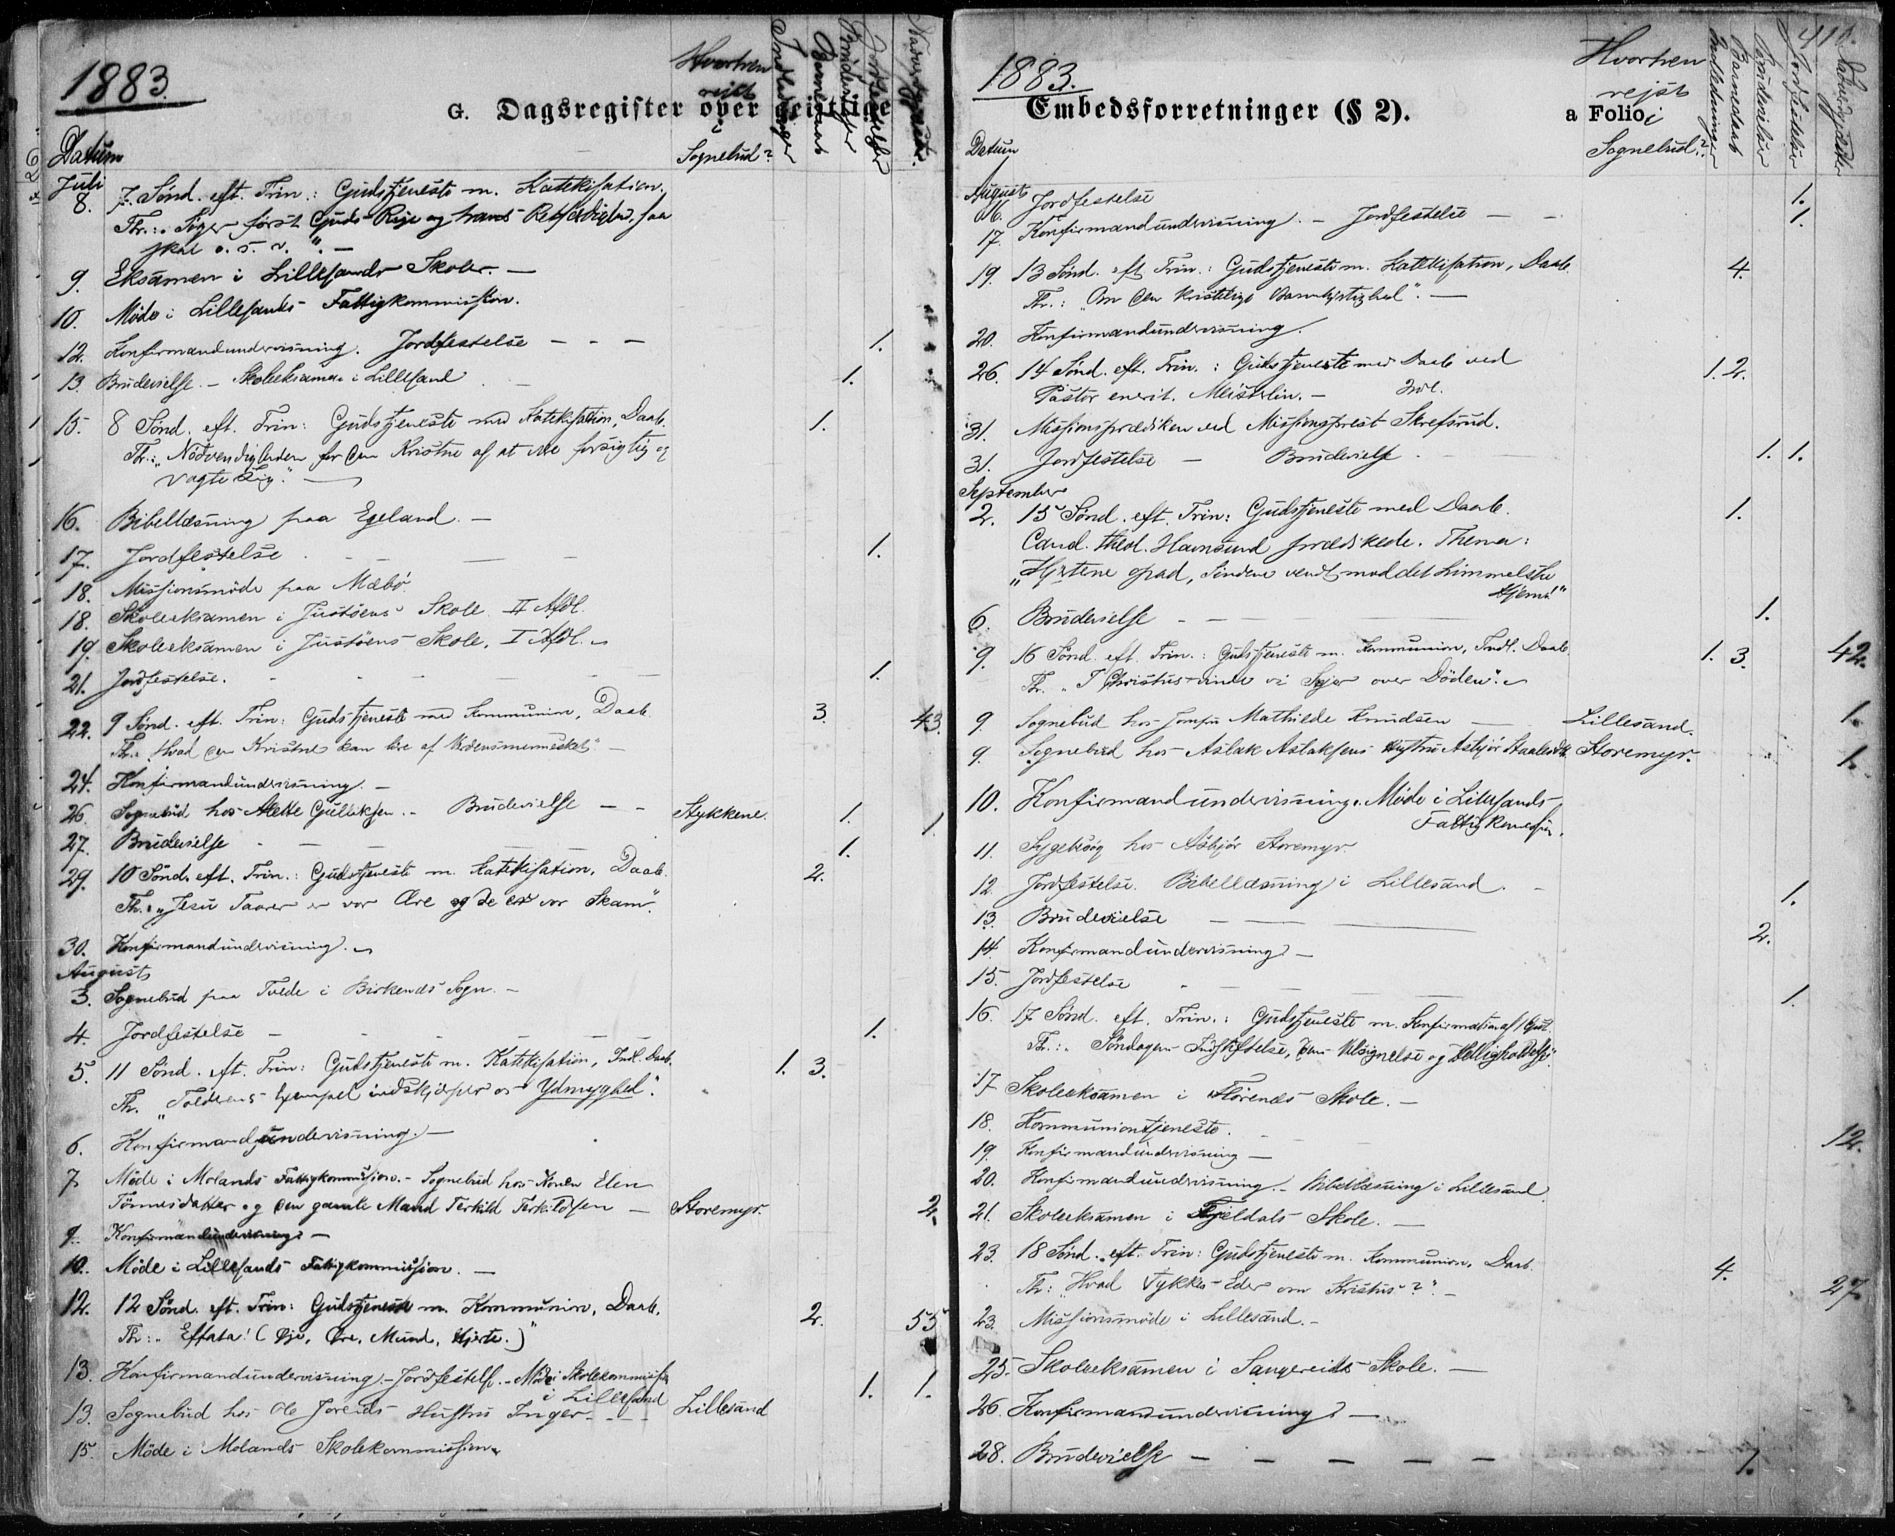 1883.
Hvorhen
rejst
i
Sognebud?
Indledninger
Barnedaab
Brudevielser
Jordfestelser
G. Dagsregister over geistlige
Datum
Juli
8. 7. Sønd. eft. Trin.: Gudstjeneste m. Katekisation.
Th.: "Søger først Guds Rige og hans Retfærdighed, saa
skal o. s. v." –
9. Eksamen i Lillesands Skoler. –
10. Møde i Lillesands Fattigkommission.
12. Konfirmandundervisning. Jordfestelse – – – 1.
13. Brudevielse. – Skoleeksamen i Lillesand – 1.
15. 8 Sønd. eft. Trin: Gudstjeneste med Katekisation, Daab. 1.
Th.: "Nødvendigheden for den Kristne af at være forsigtig og
vogte sig". –
16. Bibellæsning paa Egeland. –
17. Jordfestelse – – – 1.
18. Missionsmøde paa Mæbø.
18. Skoleeksamen i Justøens Skole. II Afdl.
19. Skoleeksamen i Justøens Skole. I Afdl. –
21. Jordfestelse. – – – 1.
22. 9 Sønd. eft. Trin: Gudstjeneste med Kommunion, Daab. 3. 43.
Th.: "Hvad den Kristne kan lære af Verdensmennesket" –
24. Konfirmandundervisning. –
26. Sognebud hos Gulleksen. – Brudevielse – – Stykkene. 1. 1.
27. Brudevielse – – – 1.
29. 10 Sønd. eft. Trin.: Gudstjeneste m. Katekisation, Daab. 2.
Th.: "Jesu Taarer er vor Ære og de ere vor Skam".
30. Konfirmandundervisning. –
August
3. Sognebud paa Tvede i Birkenes Sogn. –
4. Jordfestelse – – – 1.
5. 11 Sønd. eft. Trin: Gudstjeneste m. Katekisation, Indl. Daab. 1. 3.
Th. "Tolderens Exempel indskjærper os Ydmyghed".
6. Konfirmandundervisning. –
7. Møde i Molands Fattigkommission. – Sognebud hos Konen Elen
Tønnesdatter og den gamle Mand Terkild Terkildsen – Storemyr. 2.
9. Konfirmandundervisning –
10. Møde i Lillesands Fattigkommission. –
12. 12 Sønd. eft. Trin: Gudstjeneste m. Kommunion, Daab. 2. 55
Th: "Effata! (Øje, Øre, Mund, Hjerte.)"
13. Konfirmandundervisning. – Jordfestelse. – Møde i Skolekommission 1. 1.
i Lillesand
13. Sognebud hos Ole Hustru Inger – – – Lillesand
15. Møde i Molands Skolekommission
1883.
Hvorhen
rejst
i
Sognebud?
Indledninger
Barnedaab
Brudevielser
Jordfestelser
Embedsforretninger (§ 2).
a Folio
Datum
August
16. Jordfestelse 1.
17. Konfirmandundervisning. – Jordfestelse – – 1.
19. 13 Sønd. eft. Trin.: Gudstjeneste m. Katekisation, Daab. 4.
Th.: "Om den kristelige Barmhjertighed". –
20. Konfirmandundervisning.
26. 14 Sønd. eft. Trin.: Gudstjeneste med Daab ved 1. 2.
Pastor emerit. Meisterlin. – Indl.
31. Missionsprædiken ved Missionsprest Skrefsrud.
31. Jordfestelse – Brudevielse 1. 1.
September
2. 15 Sønd. eft. Trin: Gudstjeneste med Daab. 1.
Cand. theol. Hamsund prædikede. Thema:
"Hjertene opad, Sindene vendt mod det himmelske
Hjem!"
6. Brudevielse – – – 1.
9. 16 Sønd. eft. Trin.: Gudstjeneste m. Kommunion, Indl. Daab. 1. 3. 42.
Th. "I Christus vinde vi Sejer over Døden". –
9. Sognebud hos Jomfru Mathilde Knudsen – Lillesand. 1.
9. Sognebud hos Aslak Aslaksens Hustru Asbjør Staalesdtr. Storemyr. 1.
10. Konfirmandundervisning. Møde i Lillesands
11. Sygebesøg hos Asbjør Storemyr.
12. Jordfestelse. Bibellæsning i Lillesand. – 1.
13. Brudevielse – – 2.
14. Konfirmandundervisning –
15. Jordfestelse – – – 1.
16. 17 Sønd. eft. Trin.: Gudstjeneste m. Konfirmation af 1
Th.: "Søndagens Indstiftelse, dens Velsignelse og Helligholdelse".
17 Skoleeksamen i Skole. –
18. Kommuniontjeneste. – – 12.
19. Konfirmandundervisning –
20. Konfirmandundervisning. – Bibellæsning i Lillesand
21. Skoleeksamen i Fjeldals Skole. –
23. 18 Sønd. eft. Trin: Gudstjeneste m. Kommunion, Daab. 4.
Th: "Hvad Tykkes Eder om Kristus?" – 27
23. Missionsmøde i Lillesand. –
25. Skoleeksamen i Sangereids Skole. –
26. Konfirmandundervisning –
28. Brudevielse – – – – – 1.